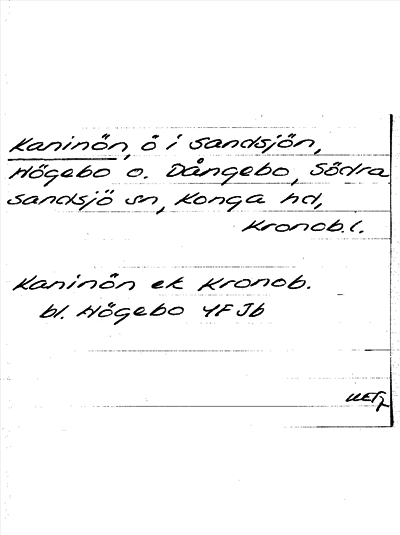 Kaninön, ö i Sandsjön,
Högebo o. Dångebo, Södra
Sandsjö sn, Konga hd,
Kronob. l.
Kaninön ek Kronob.
bl. Högebo YF Jb